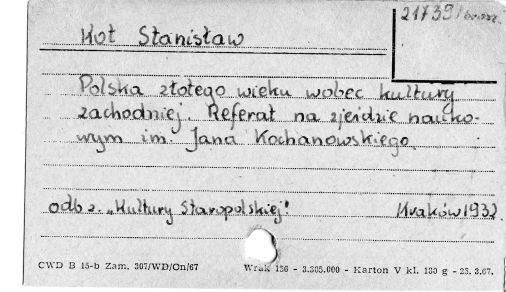 21739/brosz.
Kot Stanisław
Polska złotego wieku wobec kultury
zachodniej. Referat na zjeździe nauko-
wym im. Jana Kochanowskiego.
odb z. „Kultury Staropolskiej"
Kraków 1932
CWD B 15-b Zam. 307/WD/On/67
Wrak 156 - 3.305.000 - Karton V kl. 130 g - 25. 3.67.